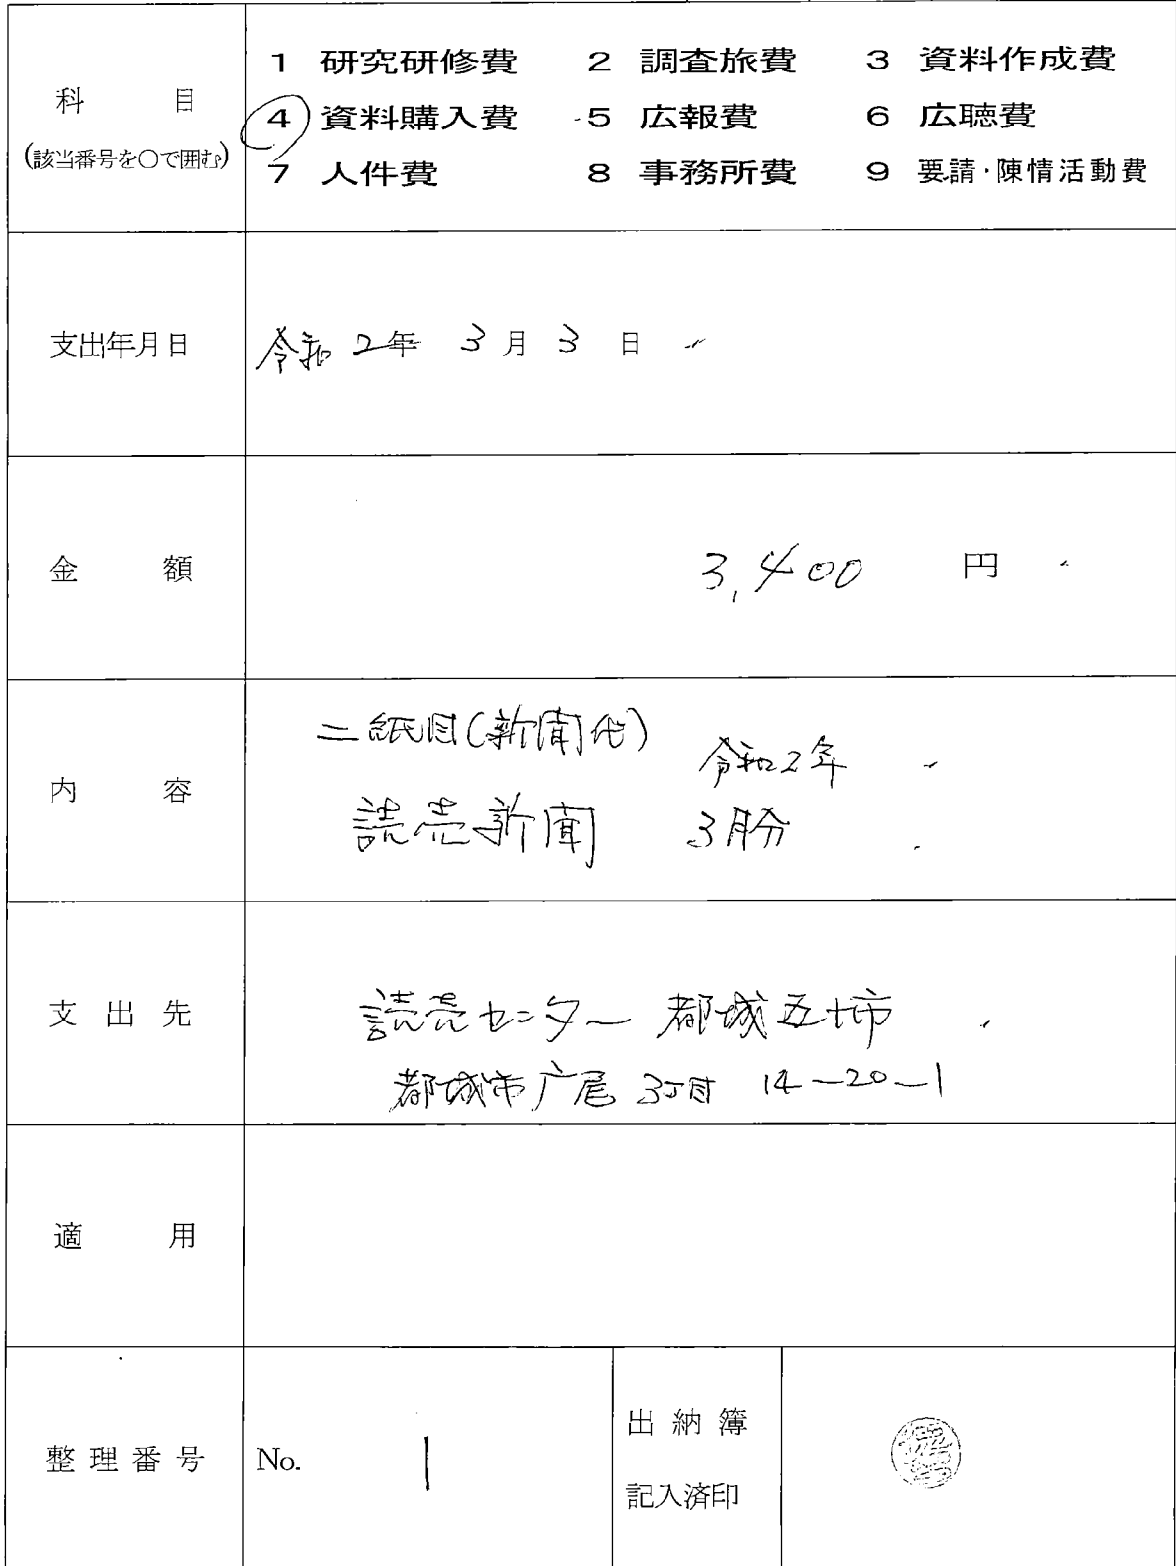 科 目
(該当番号を○で囲む)
1 研究研修費 2 調査旅費 3 資料作成費
4 資料購入費 5 広報費 6 広聴費
7 人件費 8 事務所費 9 要請・陳情活動費
支出年月日
令和 2年 3月 3日
金 額
3,400 円
内 容
二紙目(新聞代)
令和2年
読売新聞 3月分
支出先
読売センター 都城五十市
都城市広尾 3丁目 14-20-1
適 用
整理番号
No. 1
出納簿
記入済印